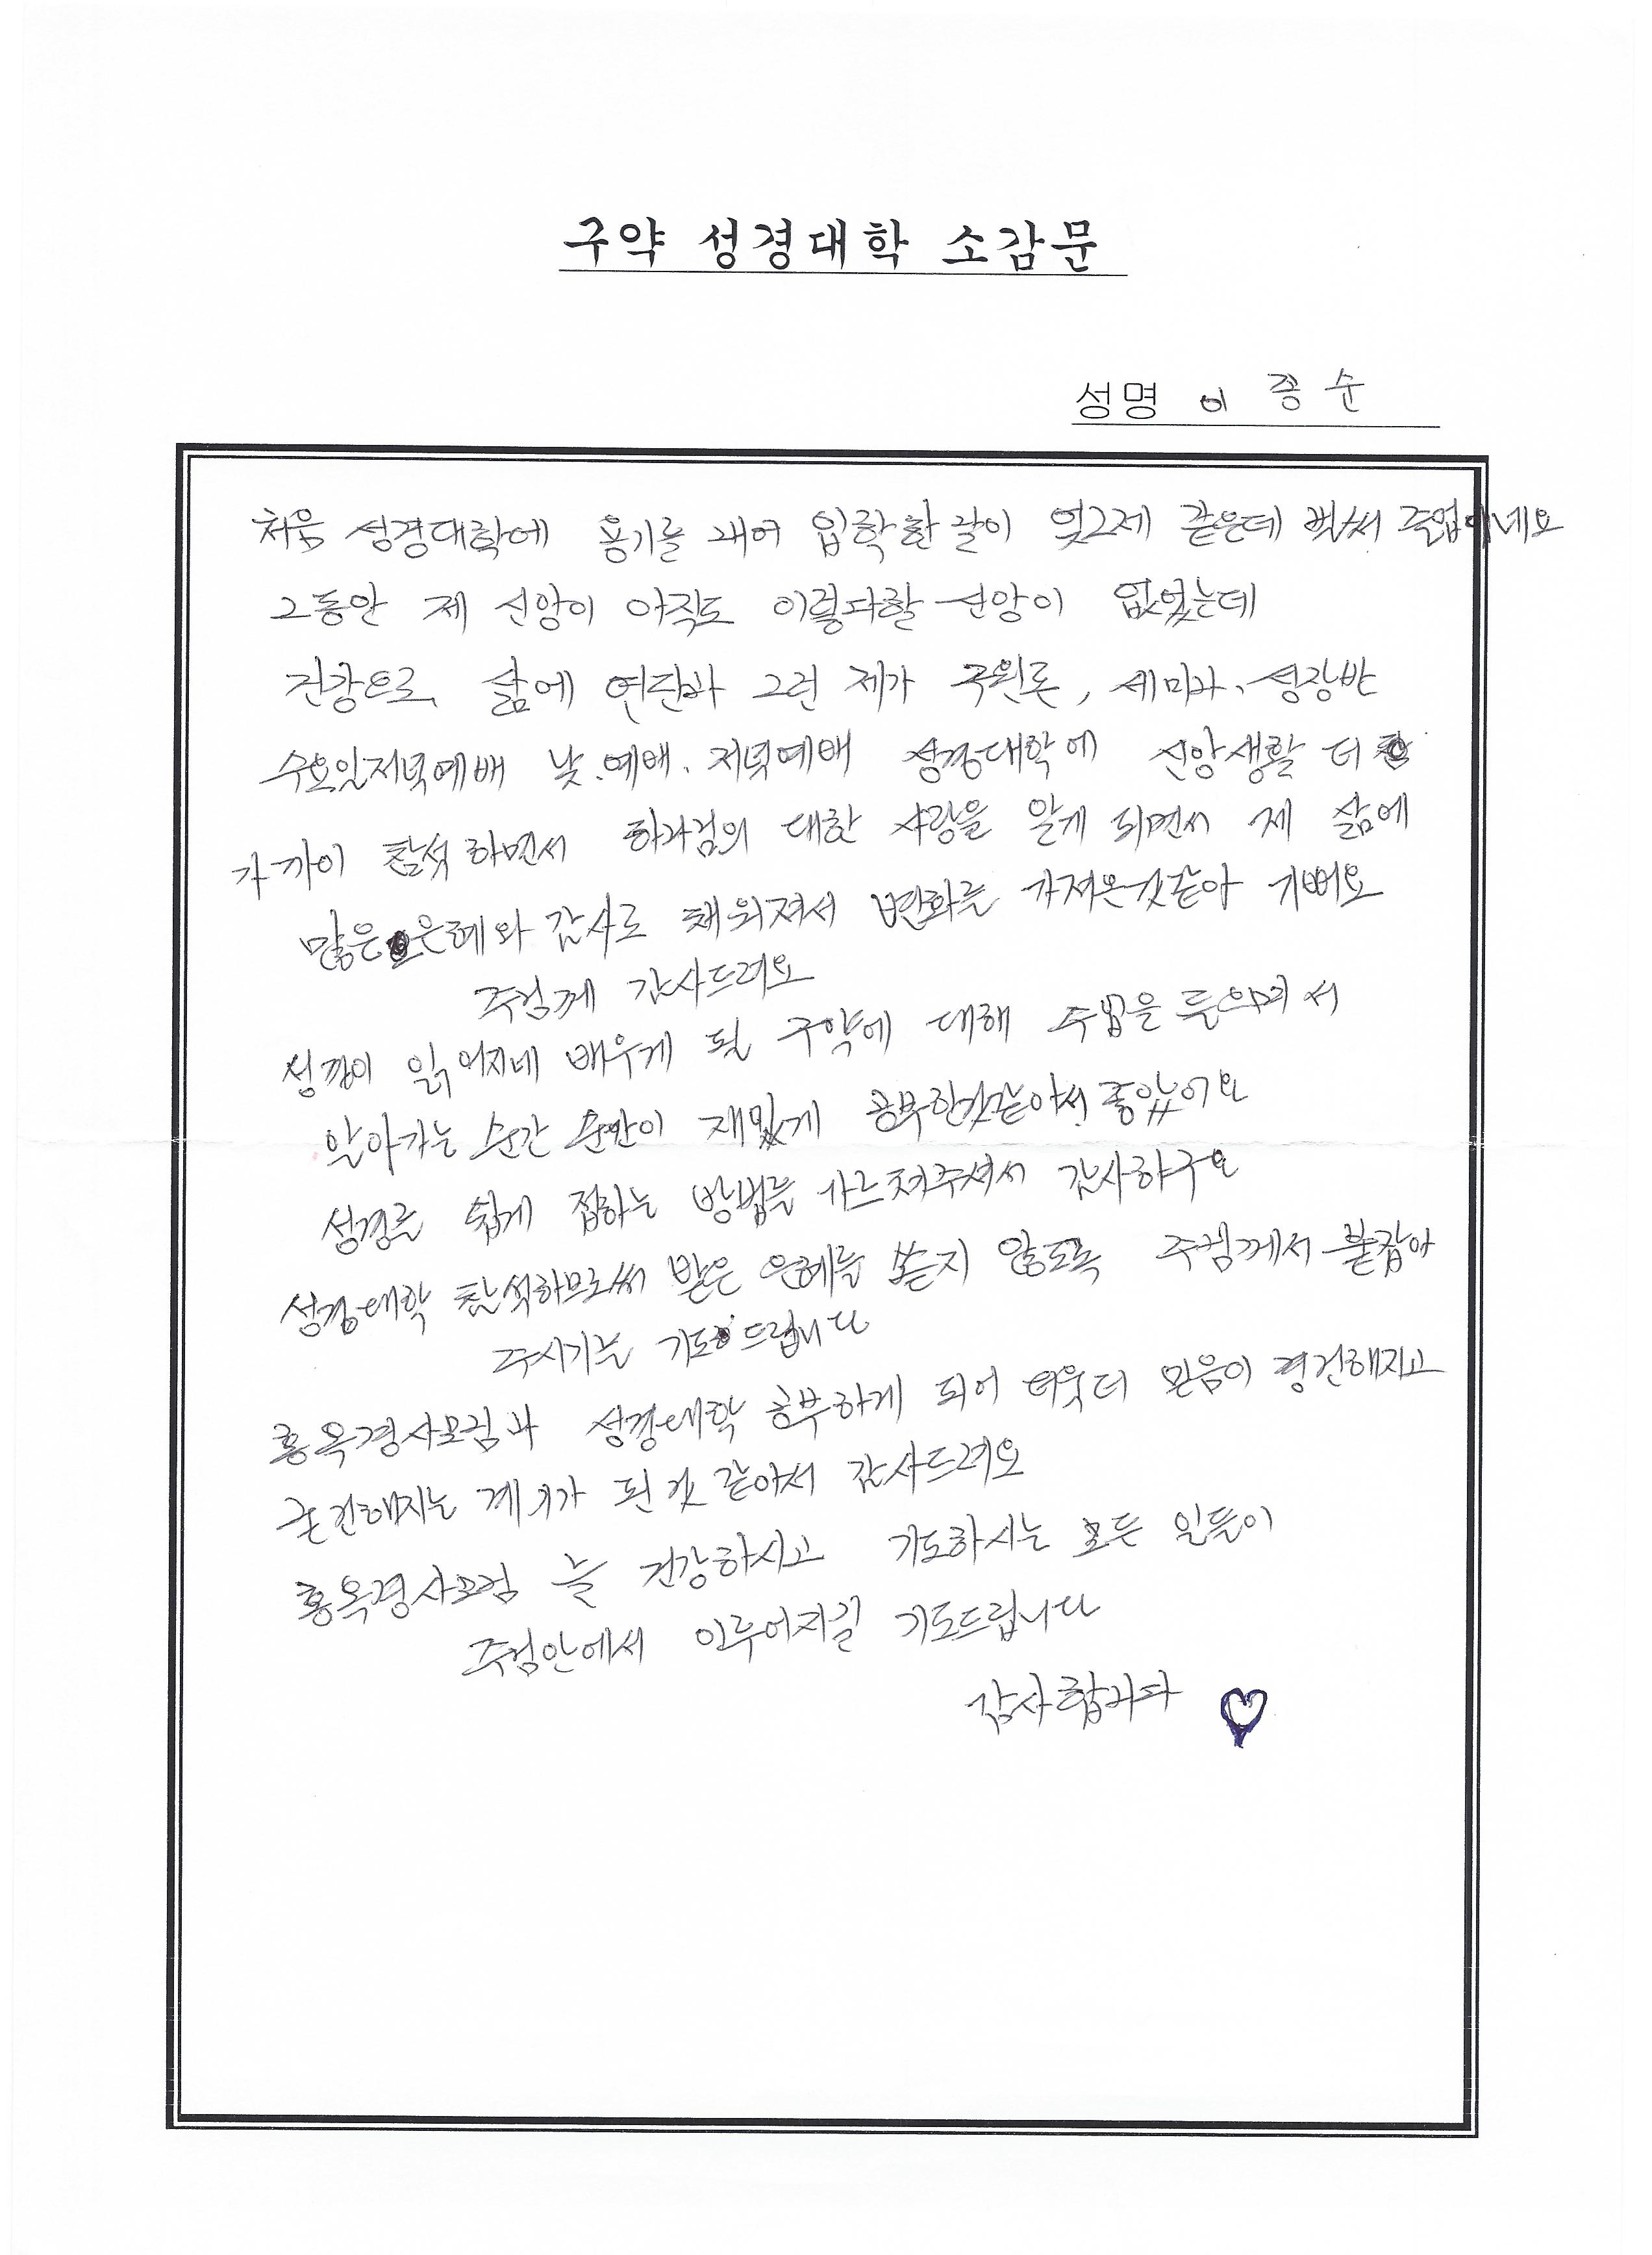 구약 성경대학 소감문
성명 이종순
처음 성경대학에 용기를 내어 입학한 날이 엊그제 같은데 벌써 졸업이네요
그동안 제 신앙이 아직도 이렇다할 신앙이 없었는데
건강으로 삶에 연단과 그런 제가 구원론, 세미나, 성장반
수요일저녁예배 낮.예배. 저녁예배 성경대학에 신앙생활 더
가까이 참석하면서 하나님의 대한 사랑을 알게 되면서 제 삶에
많은 은혜와 감사로 채워져서 변화를 가져온것같아 기뻐요
주님께 감사드려요
성경이 읽어지네 배우게 될 구약에 대해 수업을 들으며서
알아가는 순간 순간이 재밌게 공부한것같아서 좋았어요
성경를 쉽게 접하는 방법를 가르쳐주셔서 감사하구요
성경대학 참석하므로써 받은 은혜를 쏟지 않도록 주님께서 붙잡아
주시기는 기도 드립니다
홍옥경사모님과 성경대학 공부하게 되어 더욱더 믿음이 경건해지고
굳건해지는 계기가 된것 같아서 감사드려요
홍옥경사모님 늘 건강하시고 기도하시는 모든 일들이
주님안에서 이루어지길 기도드립니다
감사합니다